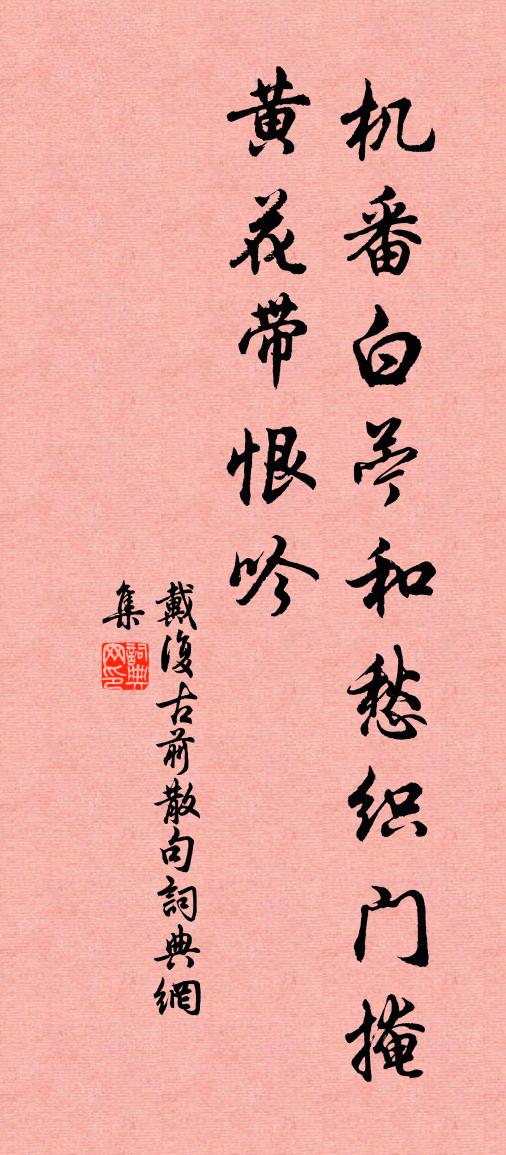 机番白苎和愁织门掩
黄花带恨吟
戴復古前散句詞典網
集
詞典网印